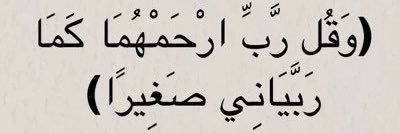 (وَقُل رَّبِّ ارْحَمْهُمَا كَمَا
رَبَّيَانِي صَغِيرًا)